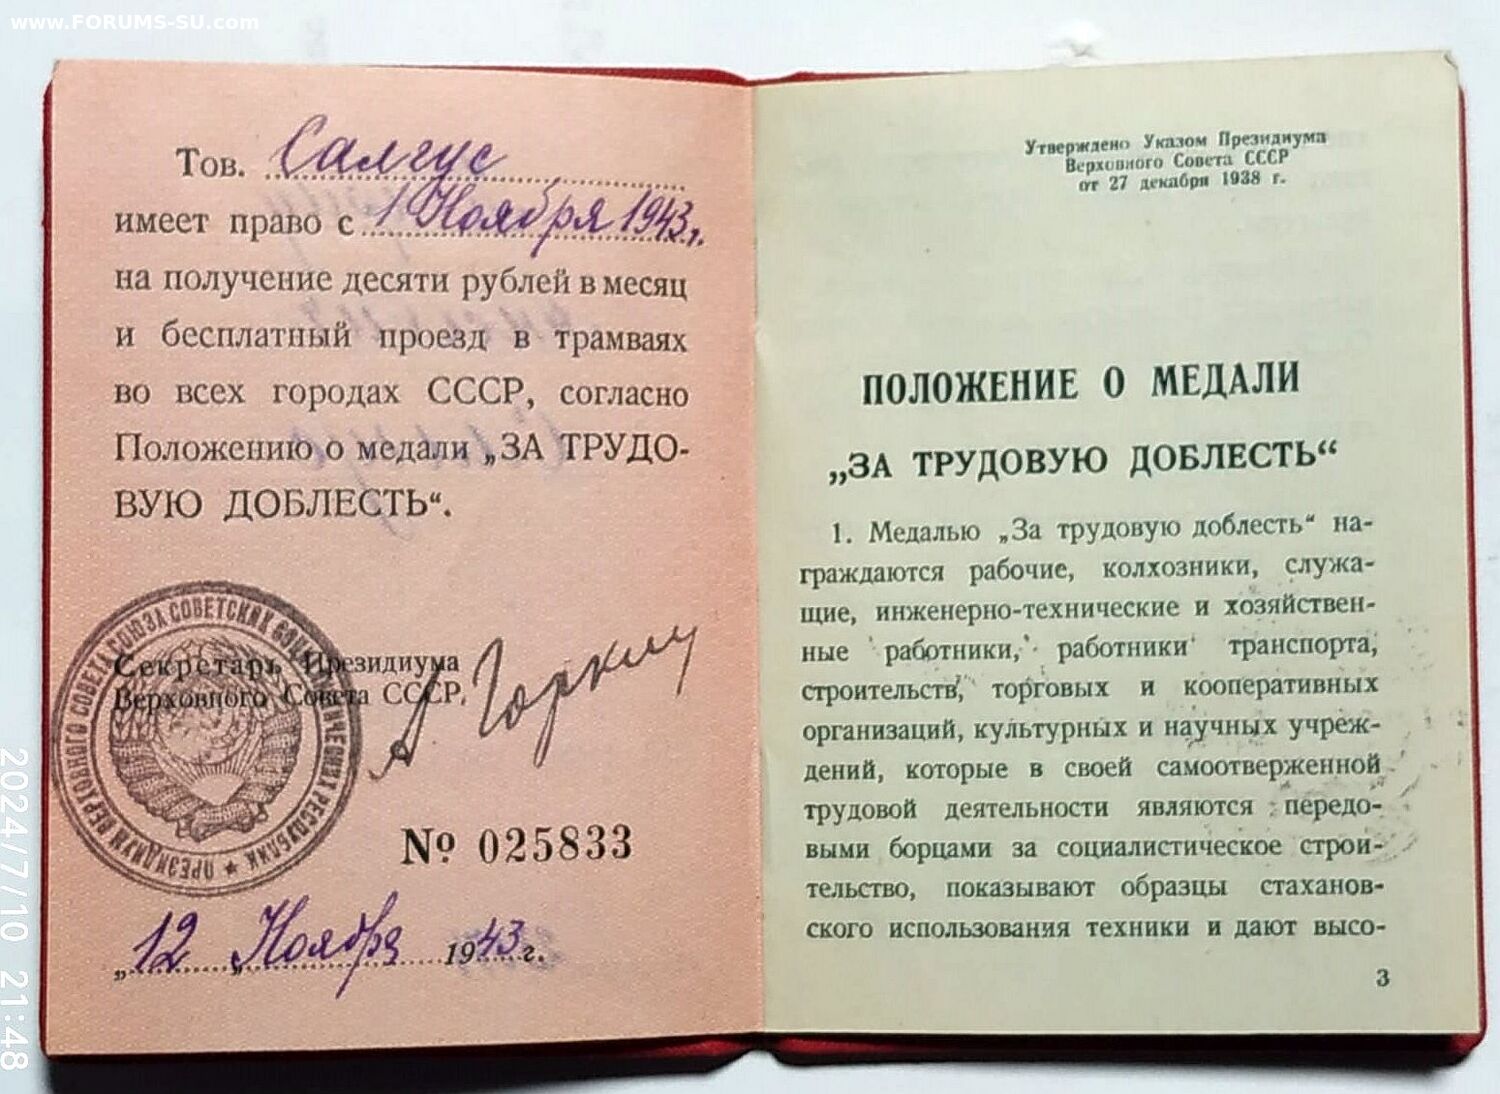 www.FORUMS-SU.com
Тов. Салгус
имеет право с 1 Ноября 1943 г.
на получение десяти рублей в месяц
и бесплатный проезд в трамваях
во всех городах СССР, согласно
Положению о медали „ЗА ТРУДО-
ВУЮ ДОБЛЕСТЬ“.
ПРЕЗИДИУМ ВЕРХОВНОГО СОВЕТА СОЮЗА СОВЕТСКИХ СОЦИАЛИСТИЧЕСКИХ РЕСПУБЛИК ★
Секретарь Президиума
Верховного Совета СССР,
А Горкин
№ 025833
„12„ Ноября 1943 г.
Утверждено Указом Президиума
Верховного Совета СССР
от 27 декабря 1938 г.
ПОЛОЖЕНИЕ О МЕДАЛИ
„ЗА ТРУДОВУЮ ДОБЛЕСТЬ“
1. Медалью „За трудовую доблесть“ на-
граждаются рабочие, колхозники, служа-
щие, инженерно-технические и хозяйствен-
ные работники, работники транспорта,
строительств, торговых и кооперативных
организаций, культурных и научных учреж-
дений, которые в своей самоотверженной
трудовой деятельности являются передо-
выми борцами за социалистическое строи-
тельство, показывают образцы стаханов-
ского использования техники и дают высо-
3
2024/7/10 21:48